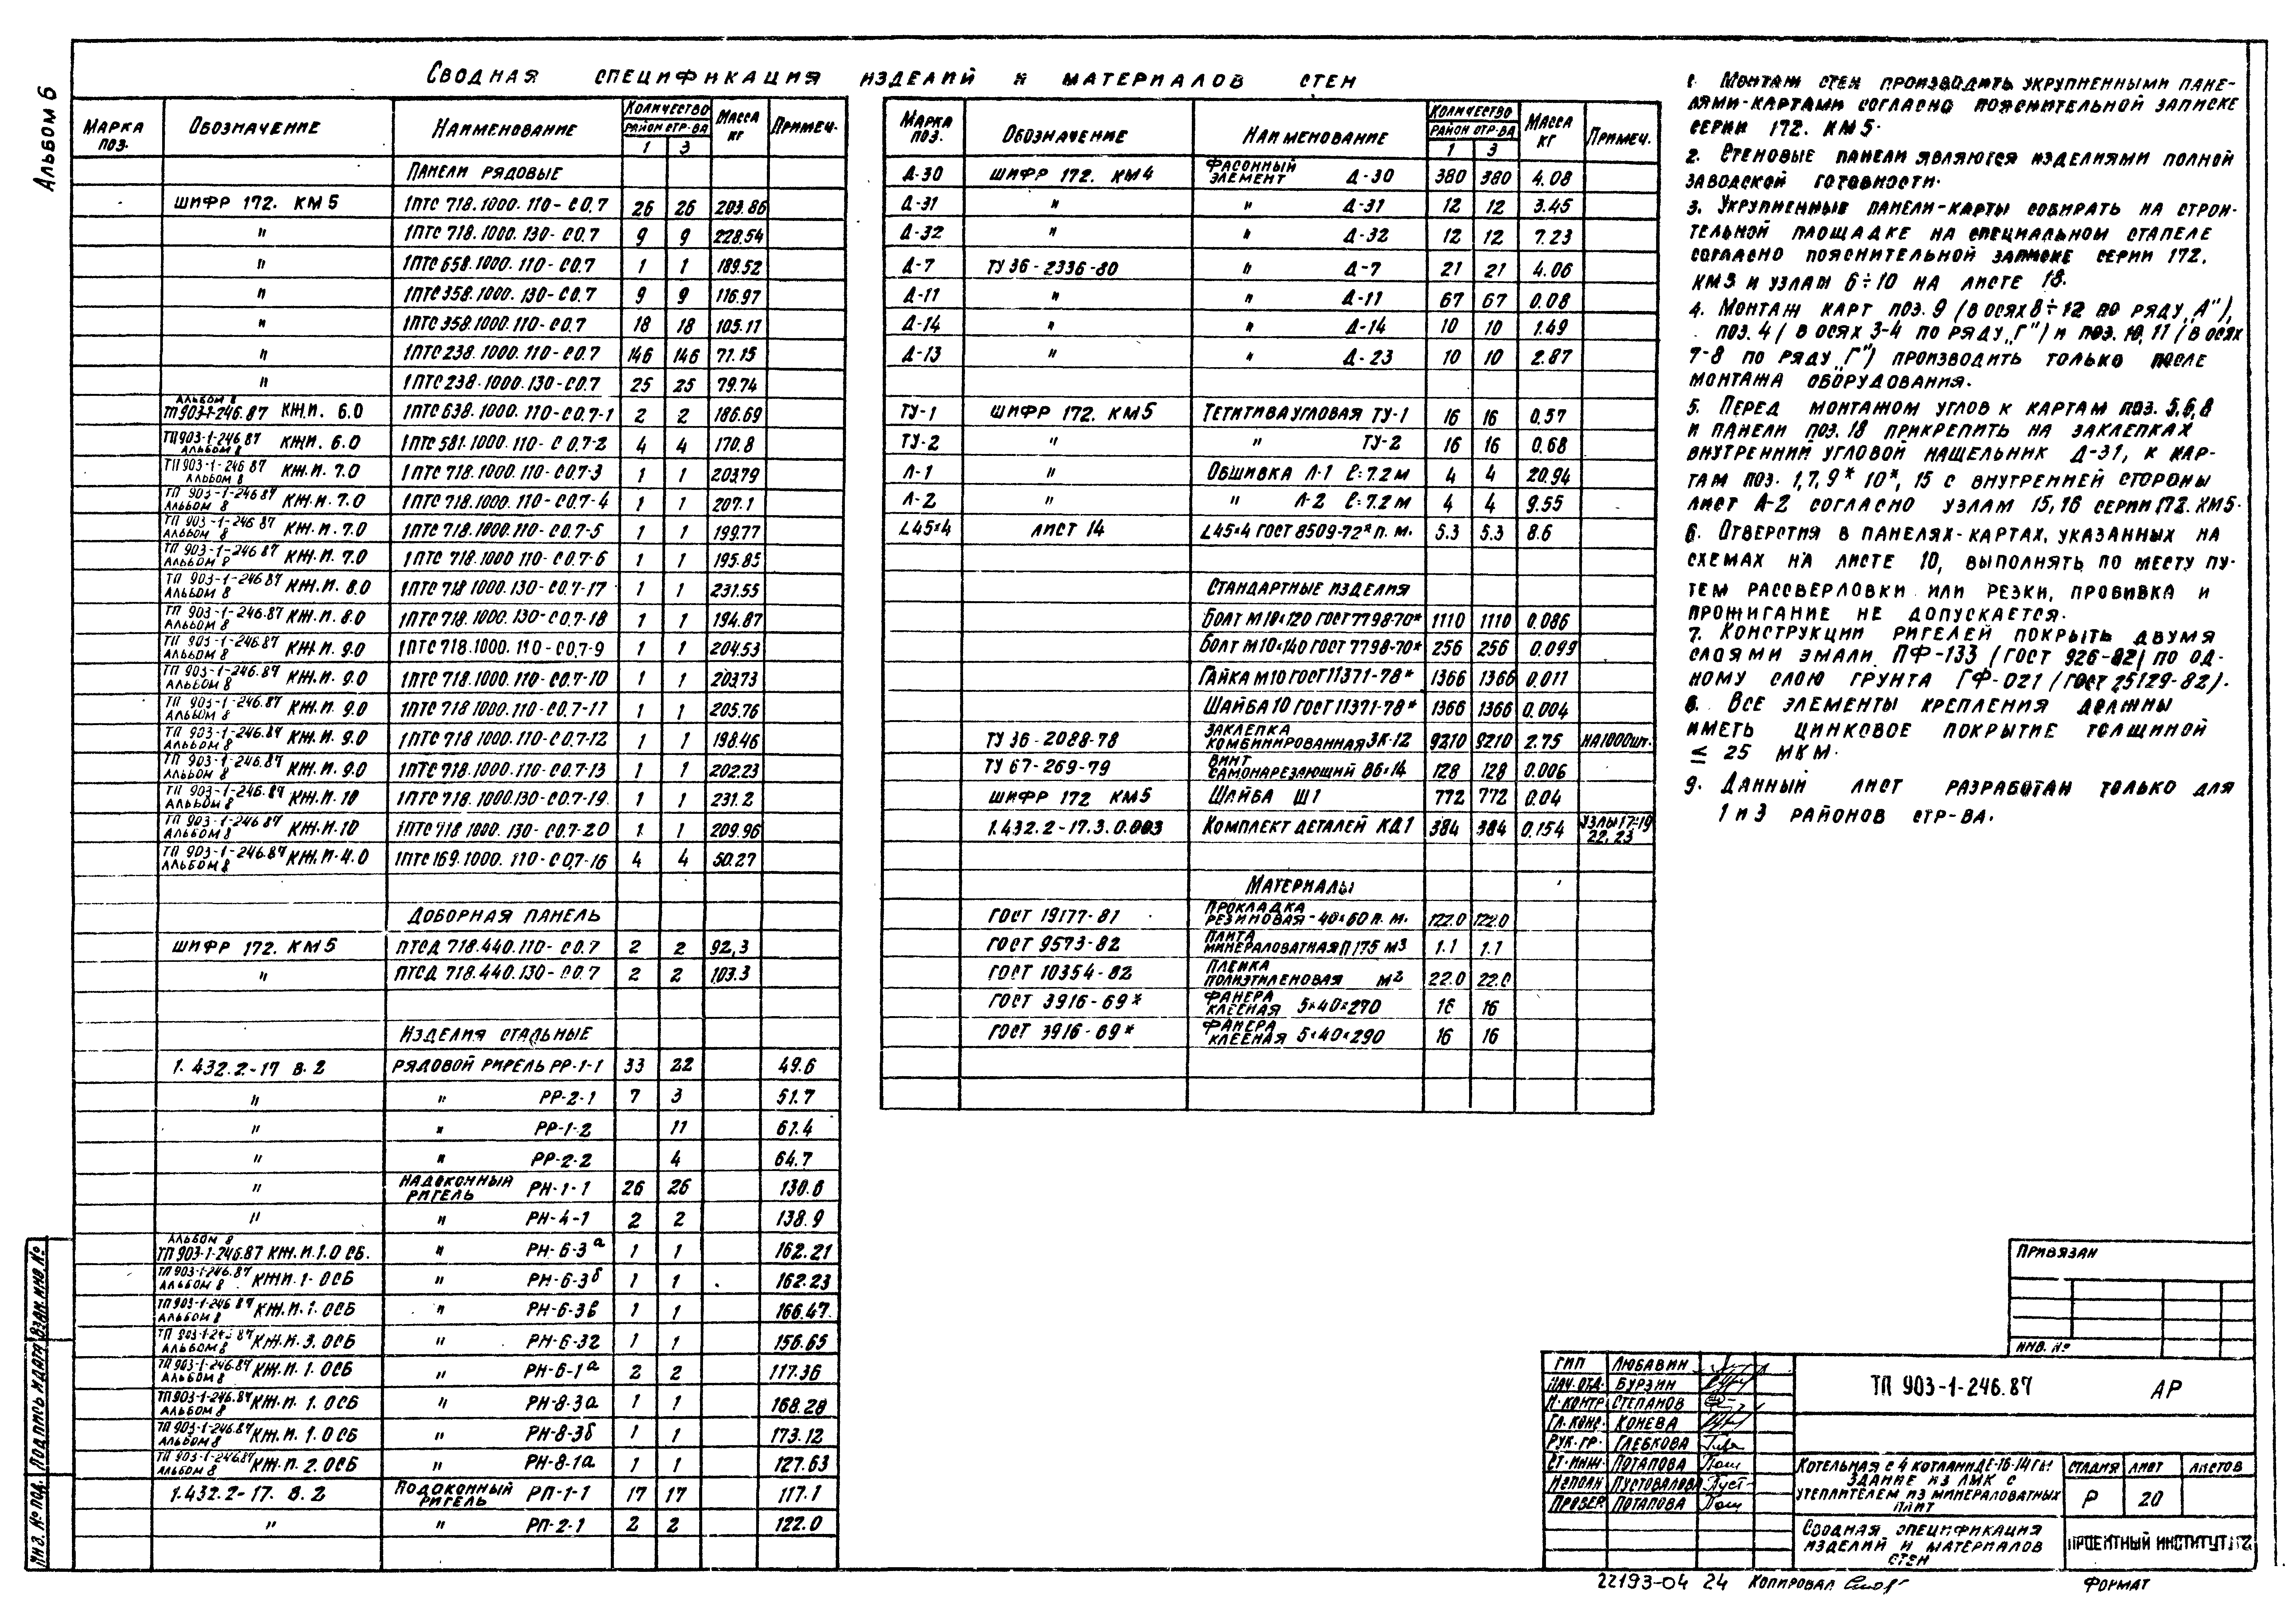 Альбом 6
Сводная спецификация изделий и материалов стен
Марка поз. Обозначение Наименование Количество Масса кг Примеч.
район стр-ва
1 3
Панели рядовые
шифр 172. КМ5 1ПТС 718.1000.110-С0.7 26 26 203.86
" 1ПТС 718.1000.130-С0.7 9 9 228.54
" 1ПТС 658.1000.110-С0.7 1 1 189.52
" 1ПТС 358.1000.130-С0.7 9 9 116.97
" 1ПТС 358.1000.110-С0.7 18 18 105.11
" 1ПТС 238.1000.110-С0.7 146 146 71.15
" 1ПТС 238.1000.130-С0.7 25 25 79.74
Альбом 8
ТП 903-1-246.87 КЖ.И. 6.0 1ПТС 638.1000.110-С0.7-1 2 2 186.69
ТП 903-1-246.87 Альбом 8 КЖИ. 6.0 1ПТС 581.1000.110-С0.7-2 4 4 170.8
ТП 903-1-246.87 Альбом 8 КЖ.И. 7.0 1ПТС 718.1000.110-С0.7-3 1 1 203.79
ТП 903-1-246.87 Альбом 8 КЖ.И. 7.0 1ПТС 718.1000.110-С0.7-4 1 1 207.1
ТП 903-1-246.87 Альбом 8 КЖ.И. 7.0 1ПТС 718.1000.110-С0.7-5 1 1 199.77
ТП 903-1-246.87 Альбом 8 КЖ.И. 7.0 1ПТС 718.1000.110-С0.7-6 1 1 195.85
ТП 903-1-246.87 Альбом 8 КЖ.И. 8.0 1ПТС 718.1000.130-С0.7-17 1 1 231.55
ТП 903-1-246.87 Альбом 8 КЖ.И. 8.0 1ПТС 718.1000.130-С0.7-18 1 1 194.87
ТП 903-1-246.87 Альбом 8 КЖ.И. 9.0 1ПТС 718.1000.110-С0.7-9 1 1 204.53
ТП 903-1-246.87 Альбом 8 КЖ.И. 9.0 1ПТС 718.1000.110-С0.7-10 1 1 203.73
ТП 903-1-246.87 Альбом 8 КЖ.И. 9.0 1ПТС 718.1000.110-С0.7-11 1 1 205.76
ТП 903-1-246.87 Альбом 8 КЖ.И. 9.0 1ПТС 718.1000.110-С0.7-12 1 1 198.46
ТП 903-1-246.87 Альбом 8 КЖ.И. 9.0 1ПТС 718.1000.110-С0.7-13 1 1 202.23
ТП 903-1-246.87 Альбом 8 КЖ.И. 10 1ПТС 718.1000.130-С0.7-19 1 1 231.2
ТП 903-1-246.87 Альбом 8 КЖ.И. 10 1ПТС 718.1000.130-С0.7-20 1 1 209.96
ТП 903-1-246.87 Альбом 8 КЖ.И-4.0 1ПТС 169.1000.110-С0,7-16 4 4 50.27
Доборная панель
шифр 172. КМ5 ПТСД 718.440.110-С0.7 2 2 92,3
" ПТСД 718.440.130-С0.7 2 2 103.3
Изделия стальные
1.432.2-17 в.2 Рядовой ригель РР-1-1 33 22 49.6
" " РР-2-1 7 3 51.7
" " РР-1-2 11 61.4
" " РР-2-2 4 64.7
" Надоконный ригель РН-1-1 26 26 130.6
" " РН-4-1 2 2 138.9
Альбом 8
ТП 903-1-246.87 КЖ.И.1.0 СБ. " РН-6-3а 1 1 162.21
ТП 903-1-246.87 Альбом 8 КЖИ.1-0СБ " РН-6-3б 1 1 162.23
ТП 903-1-246.87 Альбом 8 КЖ.И.1.0СБ " РН-6-3в 1 1 166.47
ТП 903-1-246.87 Альбом 8 КЖ.И.3.0СБ " РН-6-3г 1 1 156.65
ТП 903-1-246.87 Альбом 8 КЖ.И.1.0СБ " РН-6-1а 2 2 117.36
ТП 903-1-246.87 Альбом 8 КЖ.И.1.0СБ " РН-8-3а 1 1 168.28
ТП 903-1-246.87 Альбом 8 КЖ.И.1.0СБ " РН-8-3б 1 1 173.12
ТП 903-1-246.87 Альбом 8 КЖ.И.2.0СБ " РН-8-1а 1 1 127.63
1.432.2-17. в.2 Подоконный ригель РП-1-1 17 17 117.1
" " РП-2-1 2 2 122.0
Марка поз. Обозначение Наименование Количество Масса кг Примеч.
район стр-ва
1 3
Д-30 шифр 172. КМ4 Фасонный элемент Д-30 380 380 4.08
Д-31 " " Д-31 12 12 3.45
Д-32 " " Д-32 12 12 7.23
Д-7 ТУ 36-2336-80 " Д-7 21 21 4.06
Д-11 " " Д-11 67 67 0.08
Д-14 " " Д-14 10 10 1.49
Д-13 " " Д-23 10 10 2.87
ТУ-1 шифр 172. КМ5 Тетитива угловая ТУ-1 16 16 0.57
ТУ-2 " " ТУ-2 16 16 0.68
Л-1 " Обшивка Л-1 ℓ=7.2м 4 4 20.94
Л-2 " " Л-2 ℓ=7.2м 4 4 9.55
∟45×4 лист 14 ∟45×4 ГОСТ 8509-72* п.м. 5.3 5.3 8.6
Стандартные изделия
Болт М10×120 ГОСТ 7798-70* 1110 1110 0.086
Болт М10×140 ГОСТ 7798-70* 256 256 0.099
Гайка М10 ГОСТ 11371-78* 1366 1366 0.011
Шайба 10 ГОСТ 11371-78* 1366 1366 0.004
ТУ 36-2088-78 Заклепка комбинированная ЗК-12 9210 9210 2.75 на 1000шт.
ТУ 67-269-79 Винт самонарезающий В6×14 128 128 0.006
шифр 172 КМ5 Шайба Ш1 772 772 0.04
1.432.2-17.3.0.003 Комплект деталей КД1 384 384 0.154 узлы 17-19 22,23
Материалы
ГОСТ 19177-81 Прокладка резиновая-40×60 п.м. 122.0 122.0
ГОСТ 9573-82 Плита минераловатная П175 м3 1.1 1.1
ГОСТ 10354-82 Пленка полиэтиленовая м2 22.0 22.0
ГОСТ 3916-69* Фанера клееная 5×40×270 16 16
ГОСТ 3916-69* Фанера клееная 5×40×290 16 16
1. Монтаж стен производить укрупненными пане-
лями-картами согласно пояснительной записке
серии 172. КМ5.
2. Стеновые панели являются изделиями полной
заводской готовности.
3. Укрупненные панели-карты собирать на строи-
тельной площадке на специальном стапеле
согласно пояснительной записке серии 172.
КМ5 и узлам 6÷10 на листе 18.
4. Монтаж карт поз. 9 (в осях 8÷12 по ряду „А"),
поз. 4 (в осях 3-4 по ряду „Г") и поз. 10, 11 (в осях
7-8 по ряду „Г") производить только после
монтажа оборудования.
5. Перед монтажом углов к картам поз. 5,6,8
и панели поз. 18 прикрепить на заклепках
внутренний угловой нащельник Д-31, к кар-
там поз. 1,7,9* 10*, 15 с внутренней стороны
лист А-2 согласно узлам 15,16 серии 172. КМ5.
6. Отверстия в панелях-картах, указанных на
схемах на листе 10, выполнять по месту пу-
тем рассверловки или резки, пробивка и
прожигание не допускается.
7. Конструкции ригелей покрыть двумя
слоями эмали ПФ-133 (ГОСТ 926-82) по од-
ному слою грунта ГФ-021 (ГОСТ 25129-82).
8. Все элементы крепления должны
иметь цинковое покрытие толщиной
≤ 25 мкм.
9. Данный лист разработан только для
1 и 3 районов стр-ва.
Привязан
Инв. №
ГИП Любавин
Нач.отд. Бурзин
Н.контр. Степанов
Гл.конс. Конева
Рук.гр. Глебкова
Ст.инж. Потапова
Исполн. Пустовалова
Провер. Потапова
ТП 903-1-246.87 АР
Котельная с 4 котлами ДЕ-16-14ГМ
Здание из ЛМК с
утеплителем из минераловатных
плит
Стадия Лист Листов
Р 20
Сводная спецификация
изделий и материалов
стен
Проектный институт №2
Инв. № под. Подпись и дата Взам. инв. №
22193-04 24 Копировал Формат